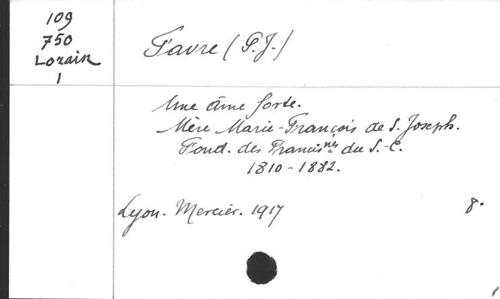 109
750
Lorain
1
Favre (P. J.)
Une âme forte.
Mère Marie-François de S. Joseph.
Fond. des Francisnes du S.-C.
1810-1882.
Lyon. Mercier. 1917
8.